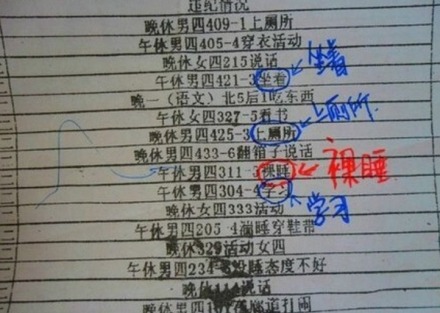 违纪情况
晚休男四409-1上厕所
午休男四405-4穿衣活动
晚休女四215说话
午休男四421-3坐着 坐着
晚一(语文)北5后1吃东西
午休女四327-5看书
晚休男四425-3上厕所 上厕所
晚休男四433-6翻箱子说话
午休男四311-3裸睡 裸睡
午休男四304-4学习 学习
晚休女四333活动
午休男四205-4 睡穿鞋带
晚休329活动女四
午休男四234- 睡态度不好
晚休 说话